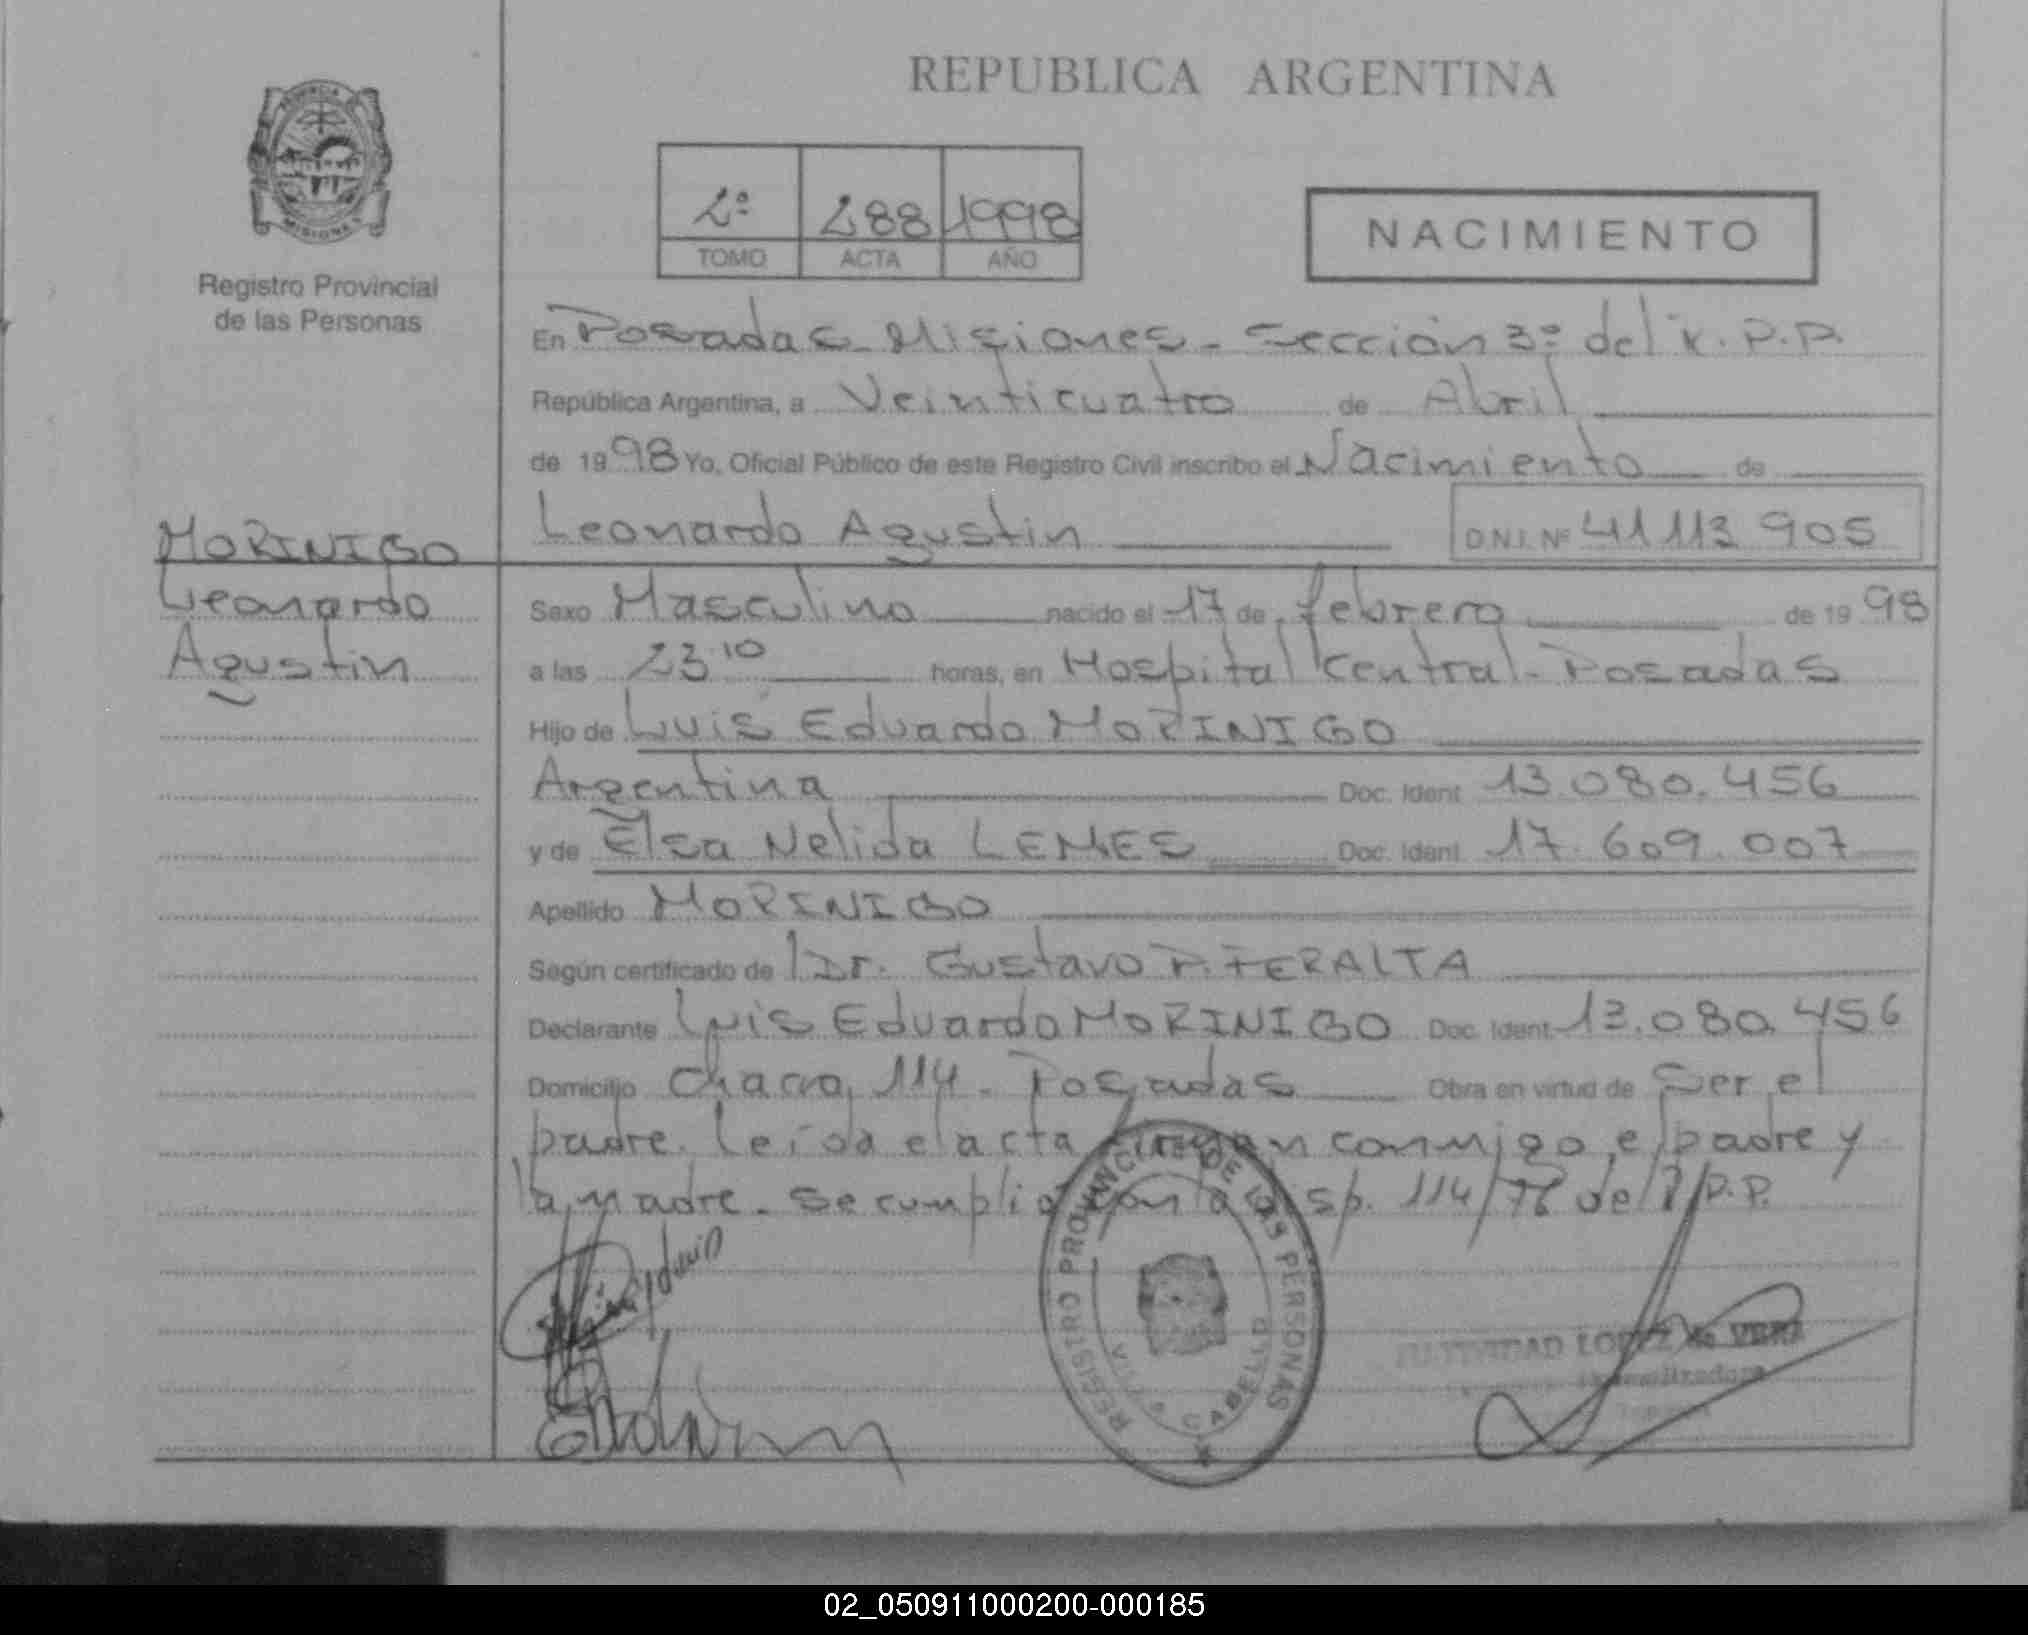 REPUBLICA ARGENTINA
PROVINCIA
MISIONES
Registro Provincial
de las Personas
2º 288 1998
TOMO ACTA AÑO
NACIMIENTO
En Posadas - Misiones - Sección 3º del R.P.P.
República Argentina, a Veinticuatro de Abril
de 1998 Yo, Oficial Público de este Registro Civil inscribo el Nacimiento de
Leonardo Agustin D.N.I. Nº 41 113 905
MORINIGO
Leonardo
Agustin
Sexo Masculino nacido el 17 de febrero de 1998
a las 23 10 horas, en Hospital Central - Posadas
Hijo de Luis Eduardo MORINIGO
Argentina Doc. Ident 13.080.456
y de Elsa Nelida LEMES Doc. Ident 17.609.007
Apellido MORINIGO
Según certificado de Dr. Gustavo P. PERALTA
Declarante Luis Eduardo MORINIGO Doc. Ident 13.080.456
Domicilio Chacra 114 - Posadas Obra en virtud de Ser el
padre. Leida el acta firman conmigo el padre y
la madre. Se cumplió con la Disp. 114/76 del R.P.P.
REGISTRO PROVINCIAL DE LAS PERSONAS
VILLA CABELLO
LOPEZ de VERA
02_050911000200-000185